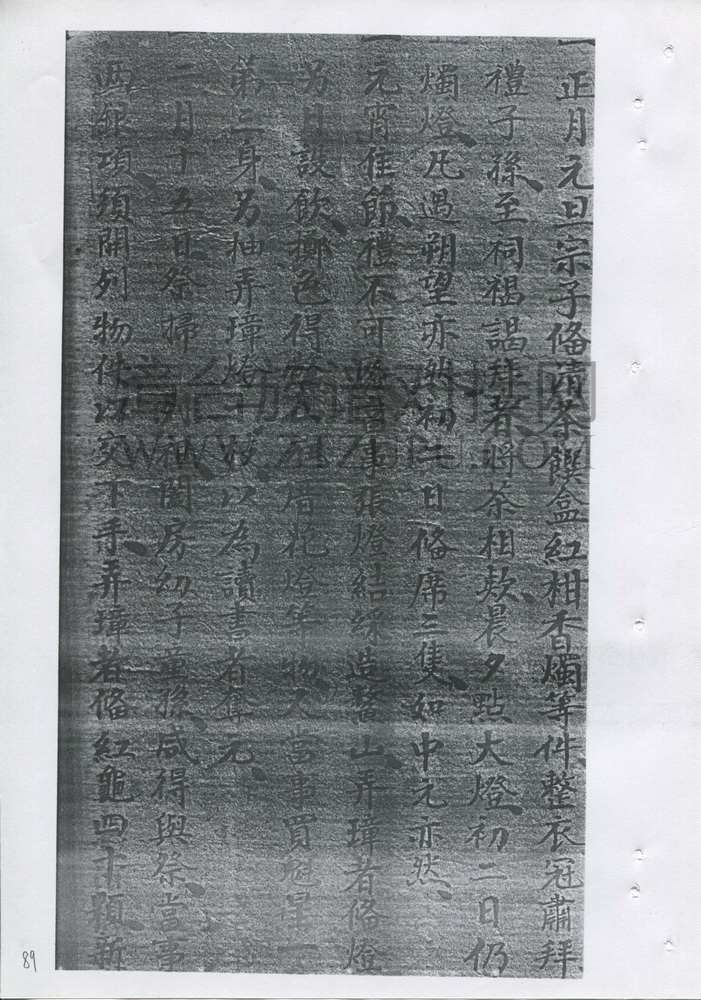 一正月元旦宗子俻清茶饌盒紅柑香燭等件整衣冠肅拜
禮子孫至祠褐謁拜者將茶相欵晨夕點大燈初二日仍
燭燈凡過朔望亦然初二日俻席三隻如中元亦然
一元宵佳節禮不可喜事張燈結綵造鰲山弄璋者俻燈
另日設飲擲色得花燈等物又當事買魁星一
第三身另抽弄璋燈十以為讀書者奪元
一二月十五日祭掃列祖閤房幼子童孫咸得與祭當事
西銀項須開列物件以交下手弄璋者俻紅龜四十顆新
89